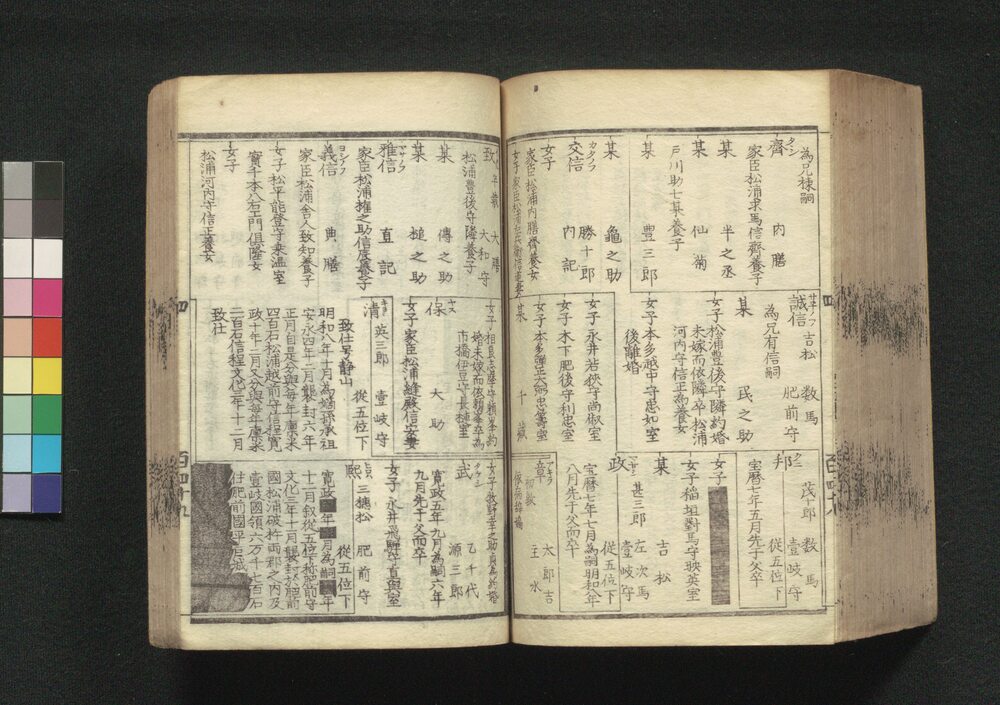 為兄棟嗣
タヾシ
齊 内膳
家臣松浦求馬信齊養子
某 半之丞
某 仙菊
戸川助七某養子
某 豊三郎
某 龜之助
カタノフ
交信 勝十郎
内記
女子
家臣松浦内膳齊養女
サネノフ
誠信 吉松 数馬
肥前守
為兄有信嗣
某 民之助
女子 松浦豊後守隣約婚
未嫁而依隣卒松浦
河内守信正為養女
女子 本多越中守忠如室
後離婚
女子 永井若狭守尚俶室
女子 木下肥後守利忠室
女子 本多彈正大弼忠籌室
某 十蔵
クニ
邦 茂十郎 数馬
壹岐守
從五位下
宝暦七年五月先于父卒
女子
女子 稲垣對馬守暎英室
某 吉松
政 甚三郎 左次馬
壹岐守
從五位下
宝暦七年七月為嗣明和八年
八月先于父而卒
アキラ
章 初数
太郎吉
主水
致 大膳
大和守
松浦豊後守隣養子
某 傳之助
某 槌之助
マサノフ
雅信 直記
家臣松浦権之助信度養子
ヨシノフ
義信 典膳
家臣松浦舎人致知養子
女子 松平能登守乗薀室
實千本八右エ門倶隆女
女子
松浦河内守信正養女
市橋伊豆守長璉室
保 大助
女子 家臣松浦縫殿信安妻
清 英三郎 壹岐守
從五位下
致仕号静山
明和八年十月為嫡孫承祖
安永四年二月襲封六年
正月自是分與毎年廪米
四百石松浦越前守信桯寛
政十年二月又分與毎年廪米
二百石信桯文化三年十一月
致仕
武 乙千代
源三郎
寛政五年九月為嗣六年
九月先于父而卒
女子 永井飛騨守直與室
熈 三穂松 肥前守
從五位下
十二月叙從五位下称肥前守
文化三年十一月襲封於肥前
國松浦彼杵両郡之内及
壹岐國領六万千七百石
住肥前國平戸城
四
百四十九